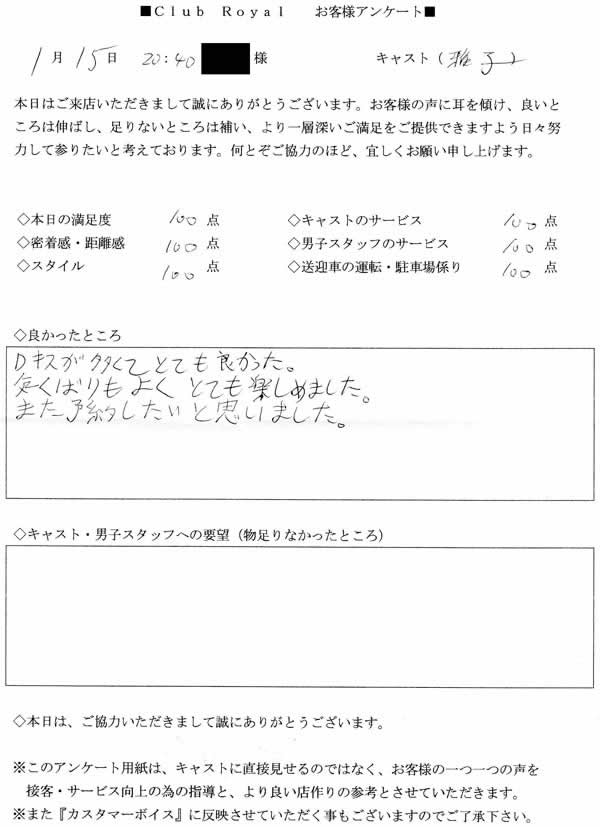 ■Club Royal お客様アンケート■
1月15日 20:40 様 キャスト(雅子)
本日はご来店いただきまして誠にありがとうございます。お客様の声に耳を傾け、良いと
ころは伸ばし、足りないところは補い、より一層深いご満足をご提供できますよう日々努
力して参りたいと考えております。何とぞご協力のほど、宜しくお願い申し上げます。
◇本日の満足度 100点 ◇キャストのサービス 100点
◇密着感・距離感 100点 ◇男子スタッフのサービス 100点
◇スタイル 100点 ◇送迎車の運転・駐車場係り 100点
◇良かったところ
Dキスが多くてとても良かった。
気くばりもよくとても楽しめました。
また予約したいと思いました。
◇キャスト・男子スタッフへの要望（物足りなかったところ）
◇本日は、ご協力いただきまして誠にありがとうございます。
※このアンケート用紙は、キャストに直接見せるのではなく、お客様の一つ一つの声を
接客・サービス向上の為の指導と、より良い店作りの参考とさせていただきます。
※また『カスタマーボイス』に反映させていただく事もございますのでご了承下さい。